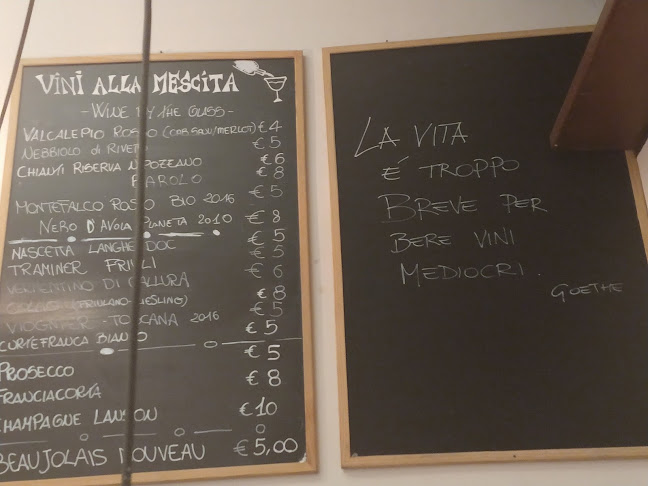 VINI ALLA MESCITA
- WINE BY THE GLASS -
VALCALEPIO ROSSO (CAB.SAUV/MERLOT) € 4
NEBBIOLO di RIVE € 5
CHIANTI RISERVA NIPOZZANO € 6
BAROLO € 8
MONTEFALCO ROSSO BIO 2016 € 5
NERO D'AVOLA PLANETA 2010 € 8
NASCETTA LANGHE DOC € 5
TRAMINER FRIULI € 5
VERMENTINO DI GALLURA € 6
(FRIULANO-RIESLING) € 8
VIOGNIER - TOSCANA 2016 € 5
CURTEFRANCA BIANCO € 5
PROSECCO € 5
FRANCIACORTA € 8
CHAMPAGNE LANSON € 10
BEAUJOLAIS NOUVEAU € 5,00
LA VITA
É TROPPO
BREVE PER
BERE VINI
MEDIOCRI.
GOETHE